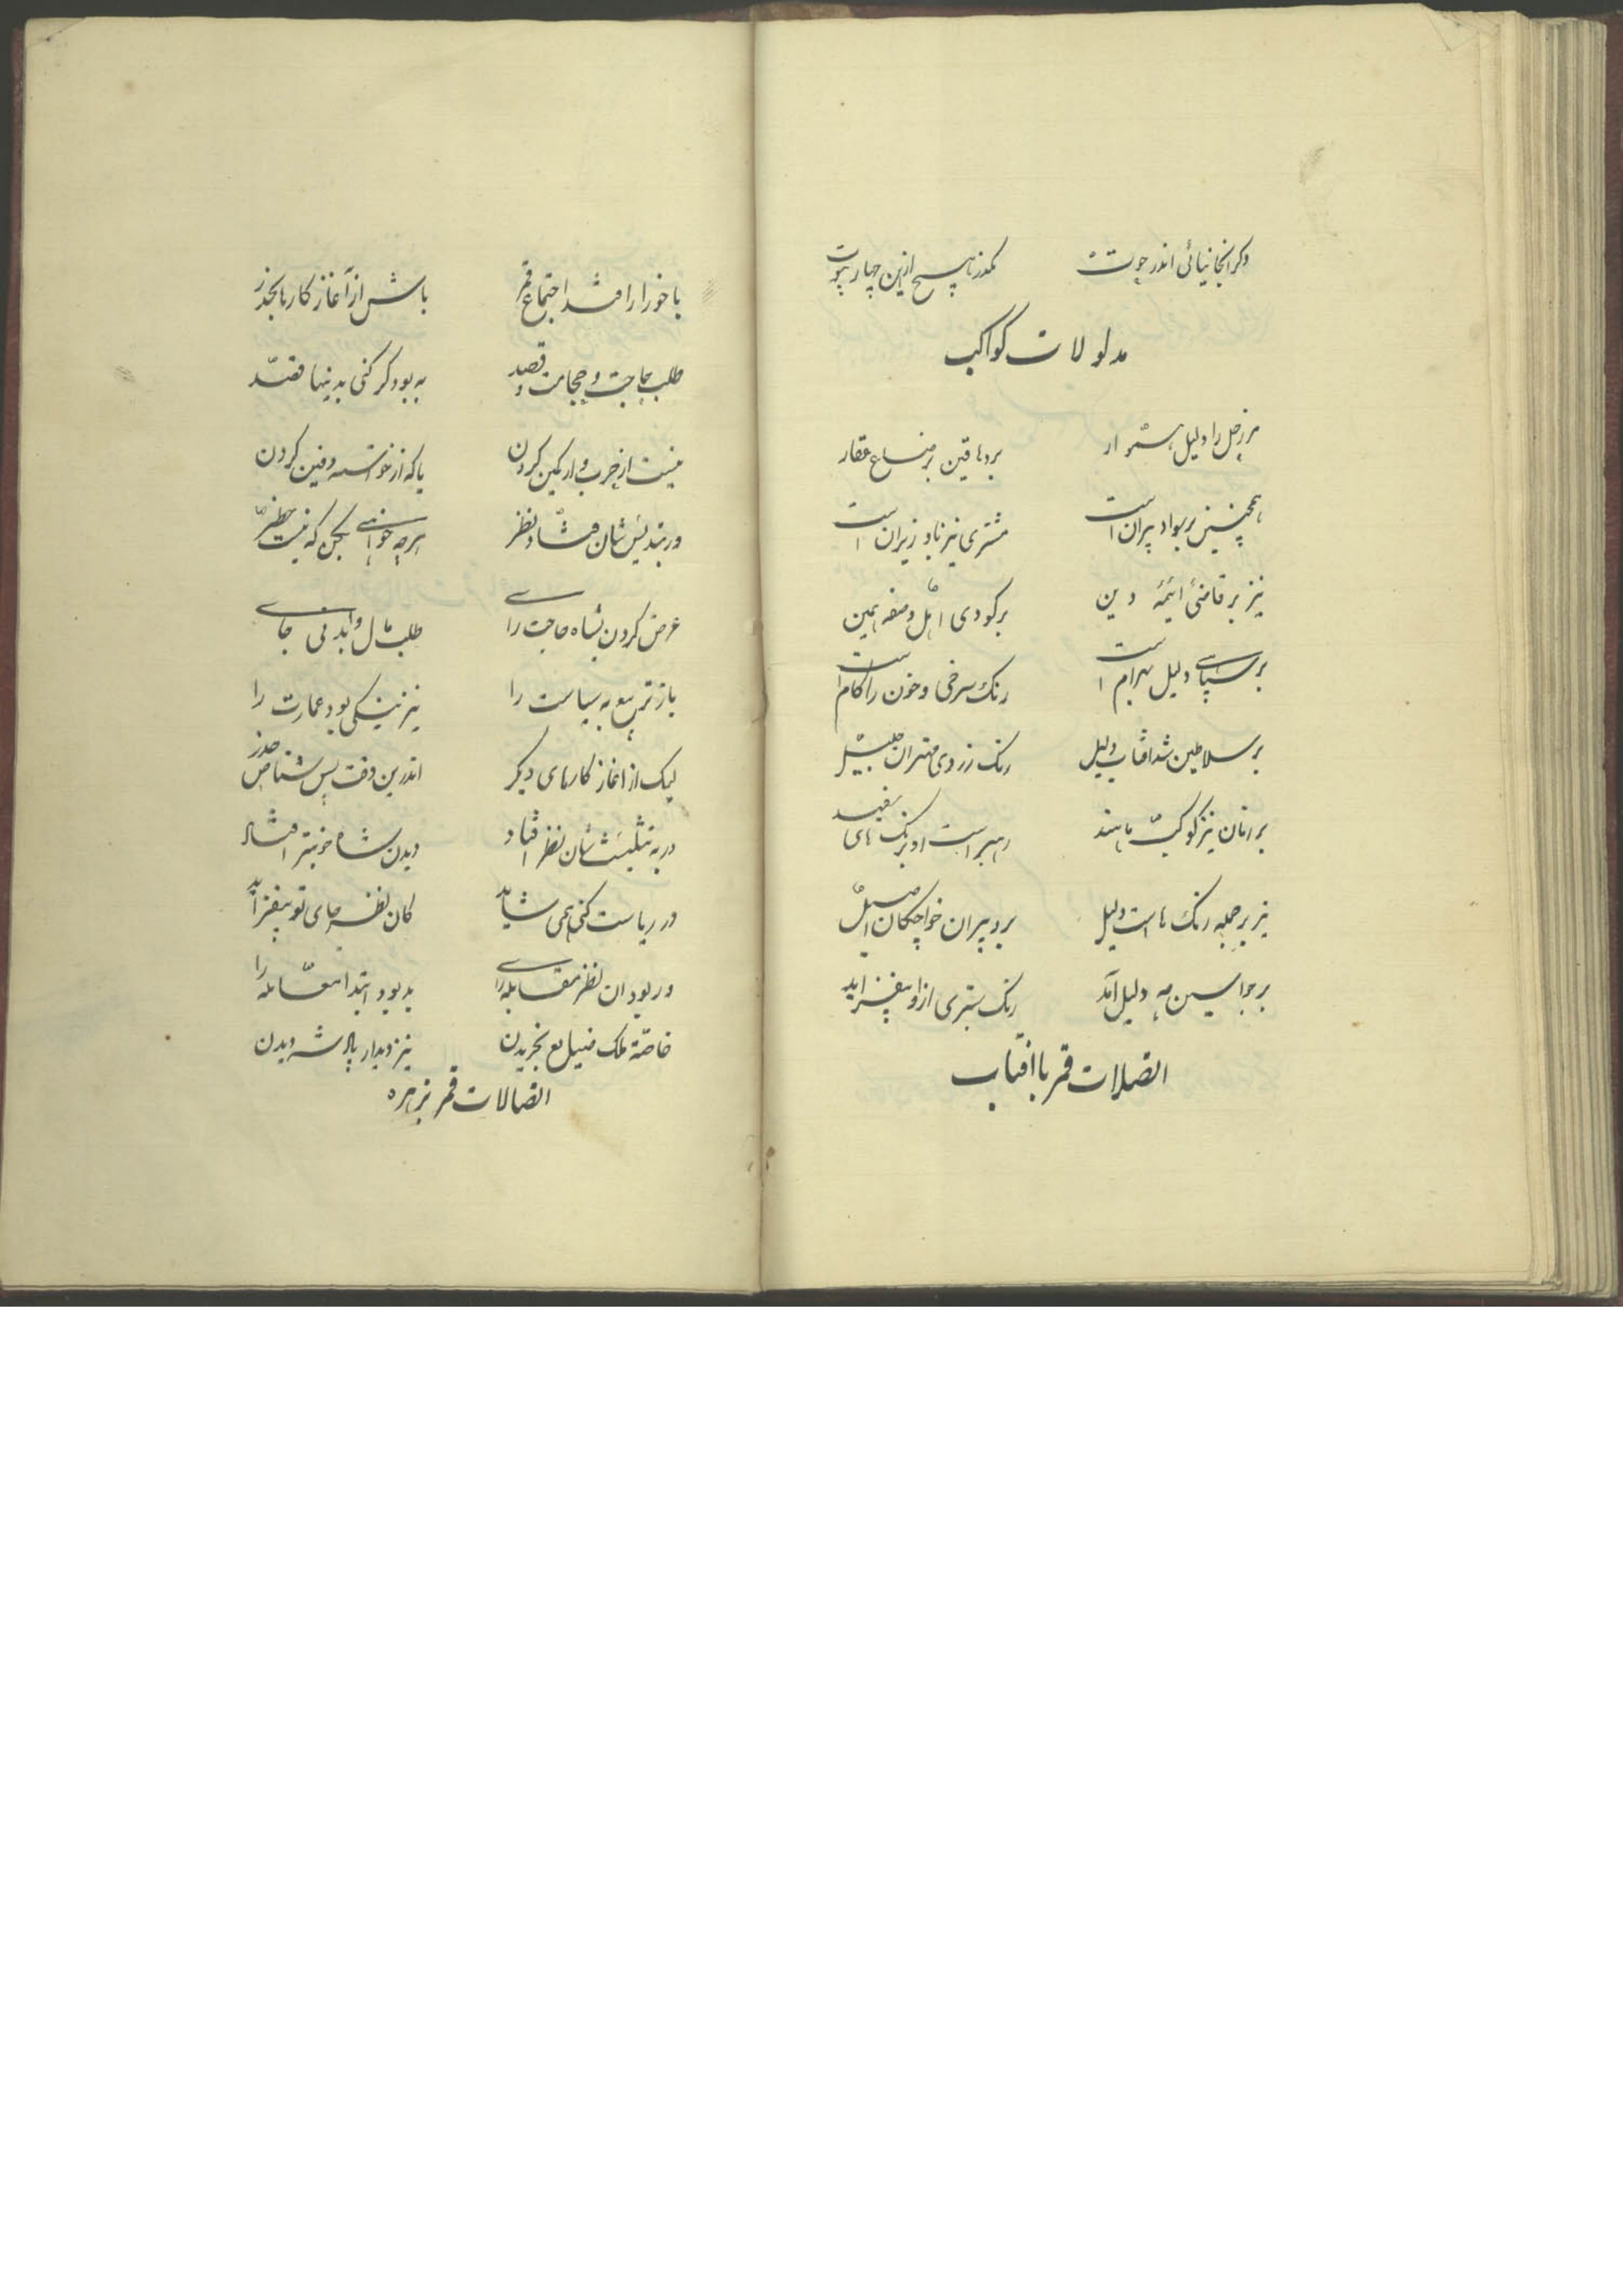 وکر انجا نیائی اندر حوت نکذر تا پسح ازین چهار بیوت
مدلولات کواکب
مر زحل را دلیل شمار بر دهاقین بر ضیاع عقار
همچنین بر سواد پیران است مشتری نیز باوزیران است
نیز بر قاضئ ائمهٔ دین بر کبودی اهل وصفه همین
بر سپاهی دلیل بهرام است رنک سرخی و خون را کام است
بر سلاطین شد افتاب دلیل رنک زردی مهتران جلیل
بر زنان نیز کوکب ناهید رهبر است او برنک های سفید
نیز بر جمله رنک ها است دلیل بر دبیران خواجکان اصیل
بر جواسیس مه دلیل آمد رنک سبزی ازو بیفزاید
اتصلات قمر با افتاب
با خور ار افتد اجتماع قمر باش از آغاز کارها بحذر
طلب حاجت و حجامت و قصد به بود کر کنی بدینها قصد
نیست از حرب و از کمین کردن یا که از خواسته دفین کردن
ور بتدیس شان فتاد نظر هرچه خواهی بکن که نیست خطر
عرض کردن بشاه حاجت را طلب مال و جای
باز تربیع به سیاست را نیز نیکی بود عمارت را
لیک از اغاز کارهای دیکر اندرین وقت پس شناص حذر
ور به تثلیث شان نظر افتاد دیدن شاه خوبتر افتاد
ور ریاست کنی همی شاید کان نظر جای تو بیفزاید
ور بود ان نظر مقابله را بد بود ابتدا معامله را
خاصّه ملک ضیاع بخریدن نیز دیدار پادشه دیدن
اتصالات قمر بزهره